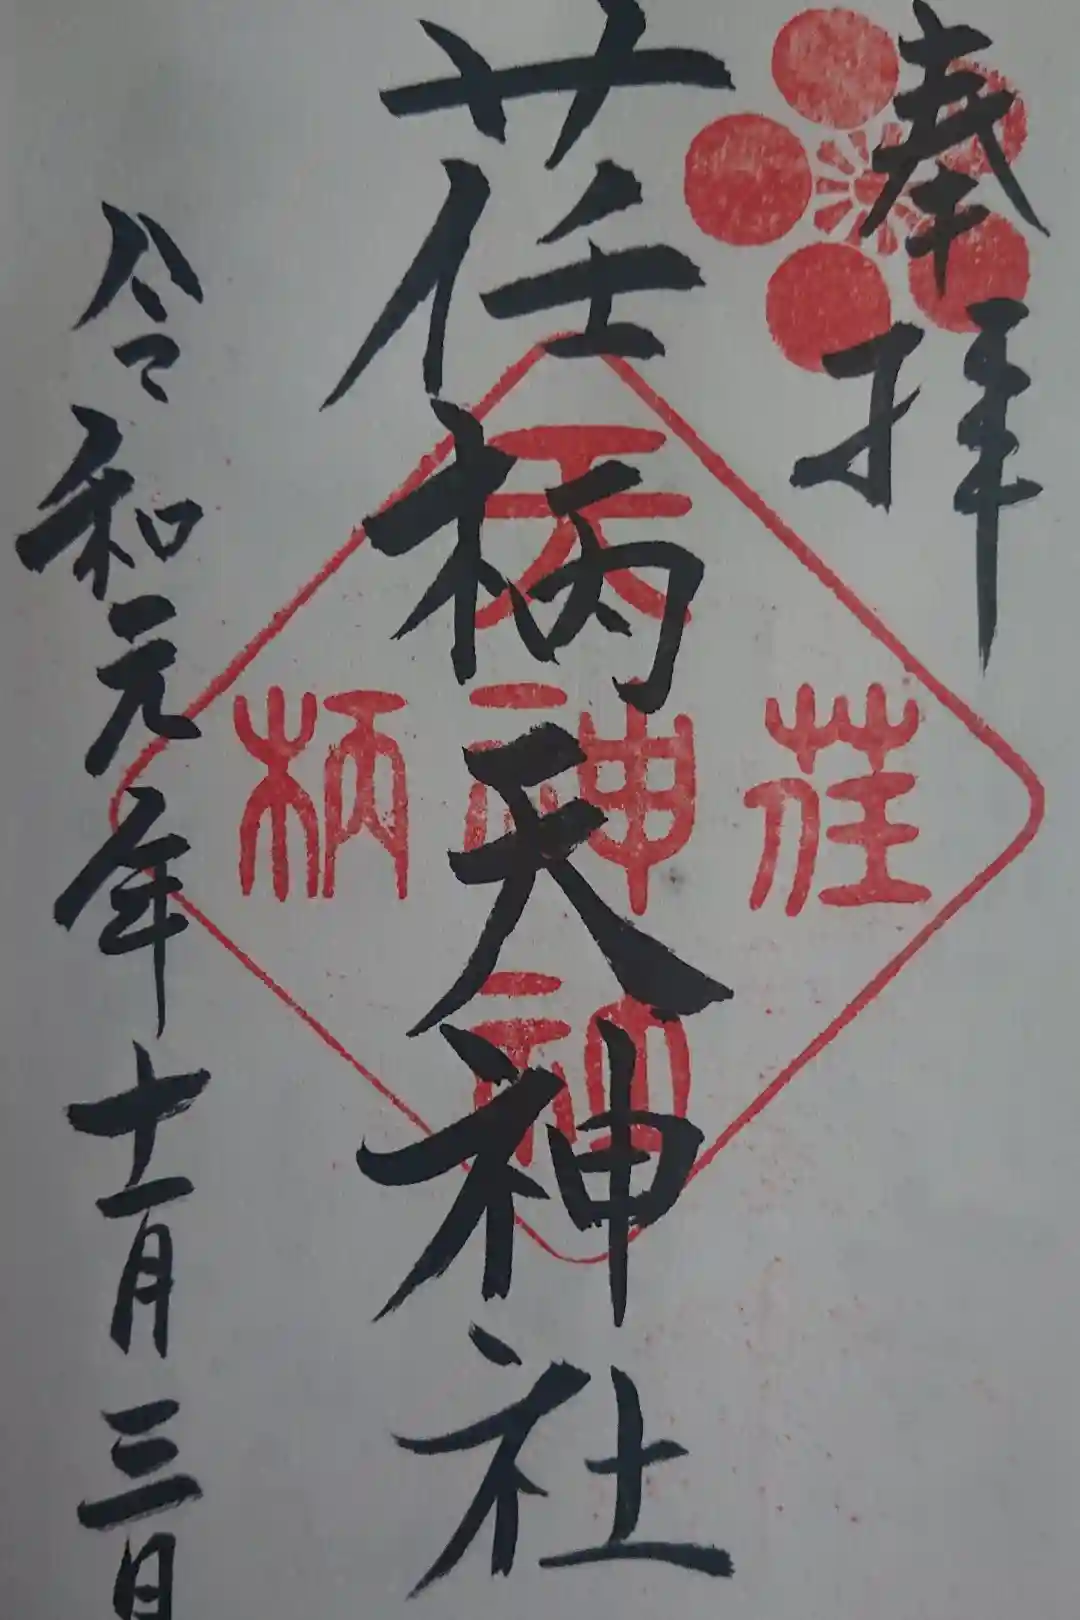 奉拝
荏柄天神社
令和元年十一月三日
荏柄天神